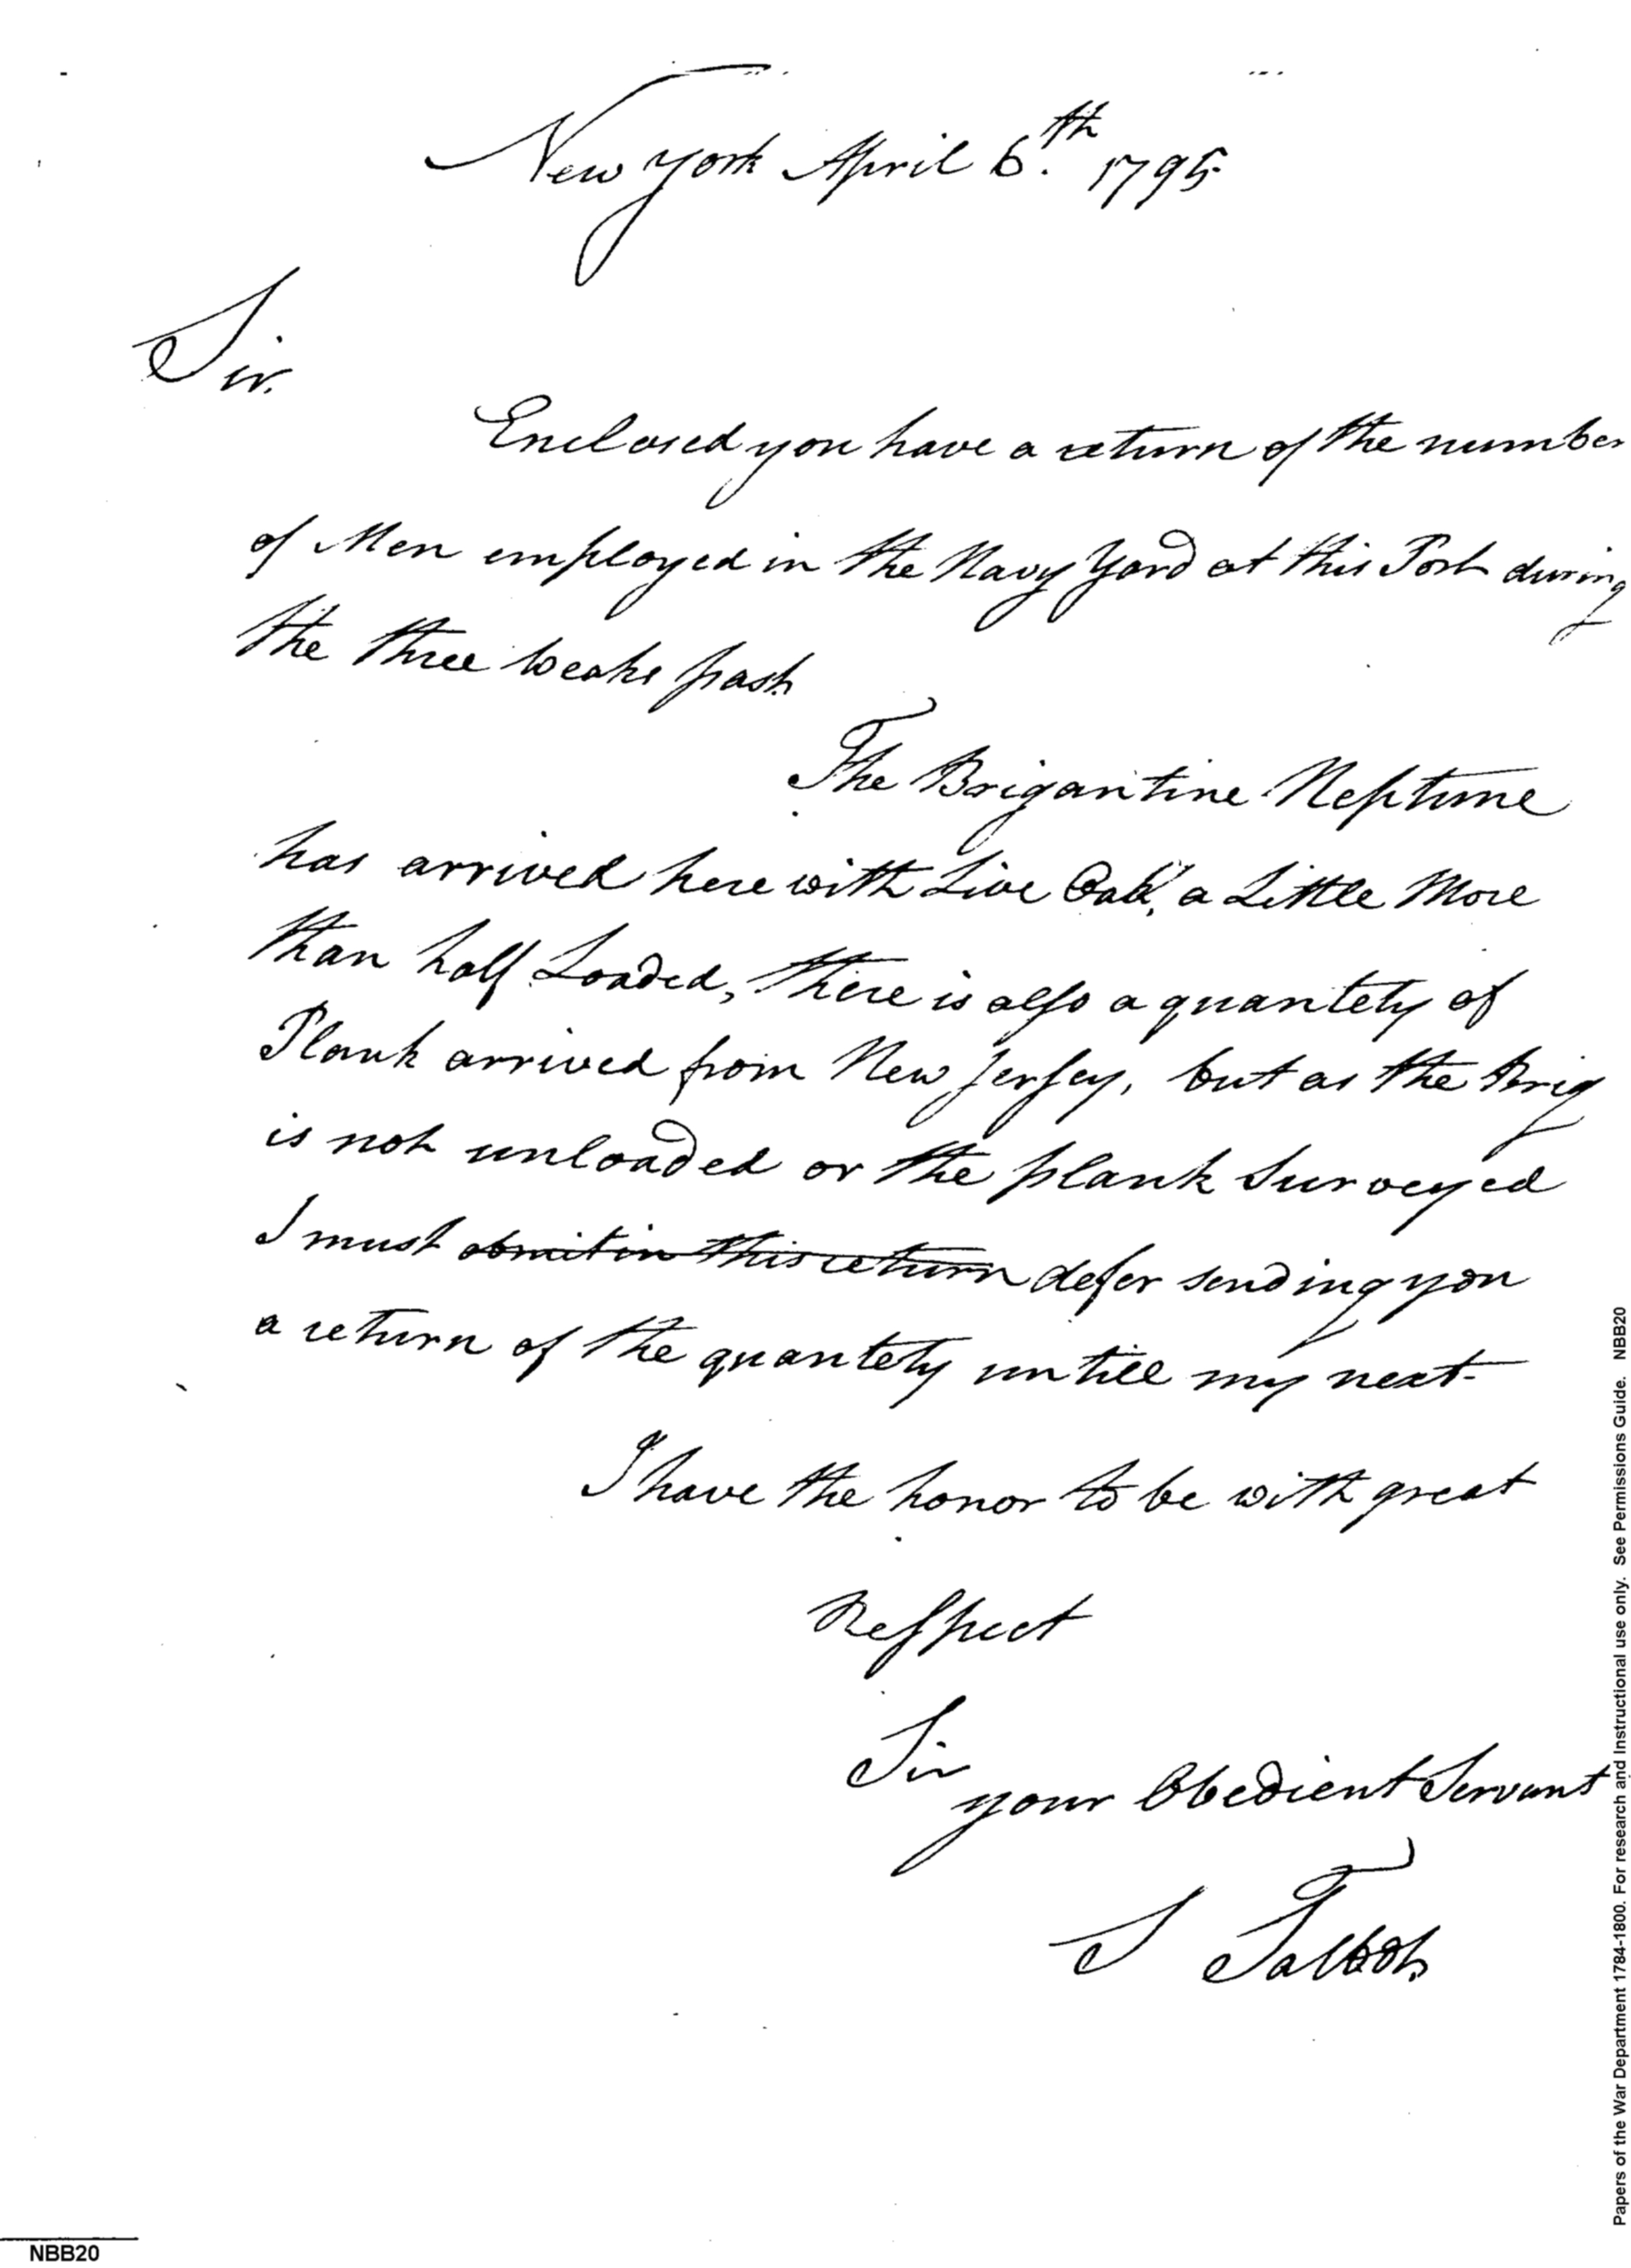 New York April 6.th 1795
Sir.
Enclosed you have a return of the number
of Men employed in the Navy Yard at this Port during
the three weaks past
The Brigantine Neptune
has arrived here with Live Oak, a Little More
than half Loaded, there is also a quantety of
Plank arrived from New Jersey, but as the Brig
is not unloaded or the plank Surveyed
I must obmit in this return defer sending you
a return of the quantety untill my next-
I have the honor to be with great
Respect
Sir
your Obedient Servant
S Talbot.
Papers of the War Department 1784-1800. For research and Instructional use only. See Permissions Guide. NBB20
NBB20